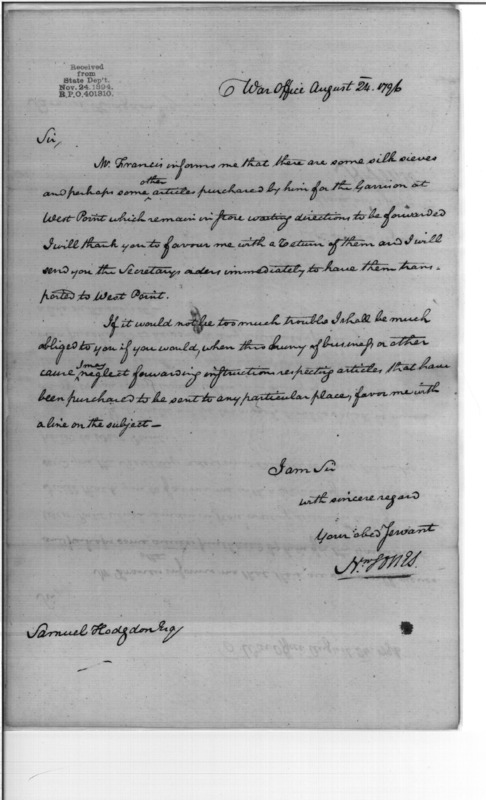 Received
from
State Dep't.
Nov. 24. 1894.
R.P.O. 401810.
War Office August 24. 1796
Sir,
Mr. Francis informs me that there are some silk sieves
and perhaps some other articles purchased by him for the Garrison at
West Point which remain in store waiting directions to be forwarded
I will thank you to favour me with a return of them and I will
send you the Secretarys orders immediately to have them trans-
ported to West Point.
If it would not be too much trouble I shall be much
obliged to you if you would, when thro hurry of business or other
cause I may neglect forwarding instructions respecting articles that have
been purchased to be sent to any particular place, favor me with
a line on the subject —
I am Sir
with sincere regard
Your obed Servant
Nn Jones
Samuel Hodgdon Esq